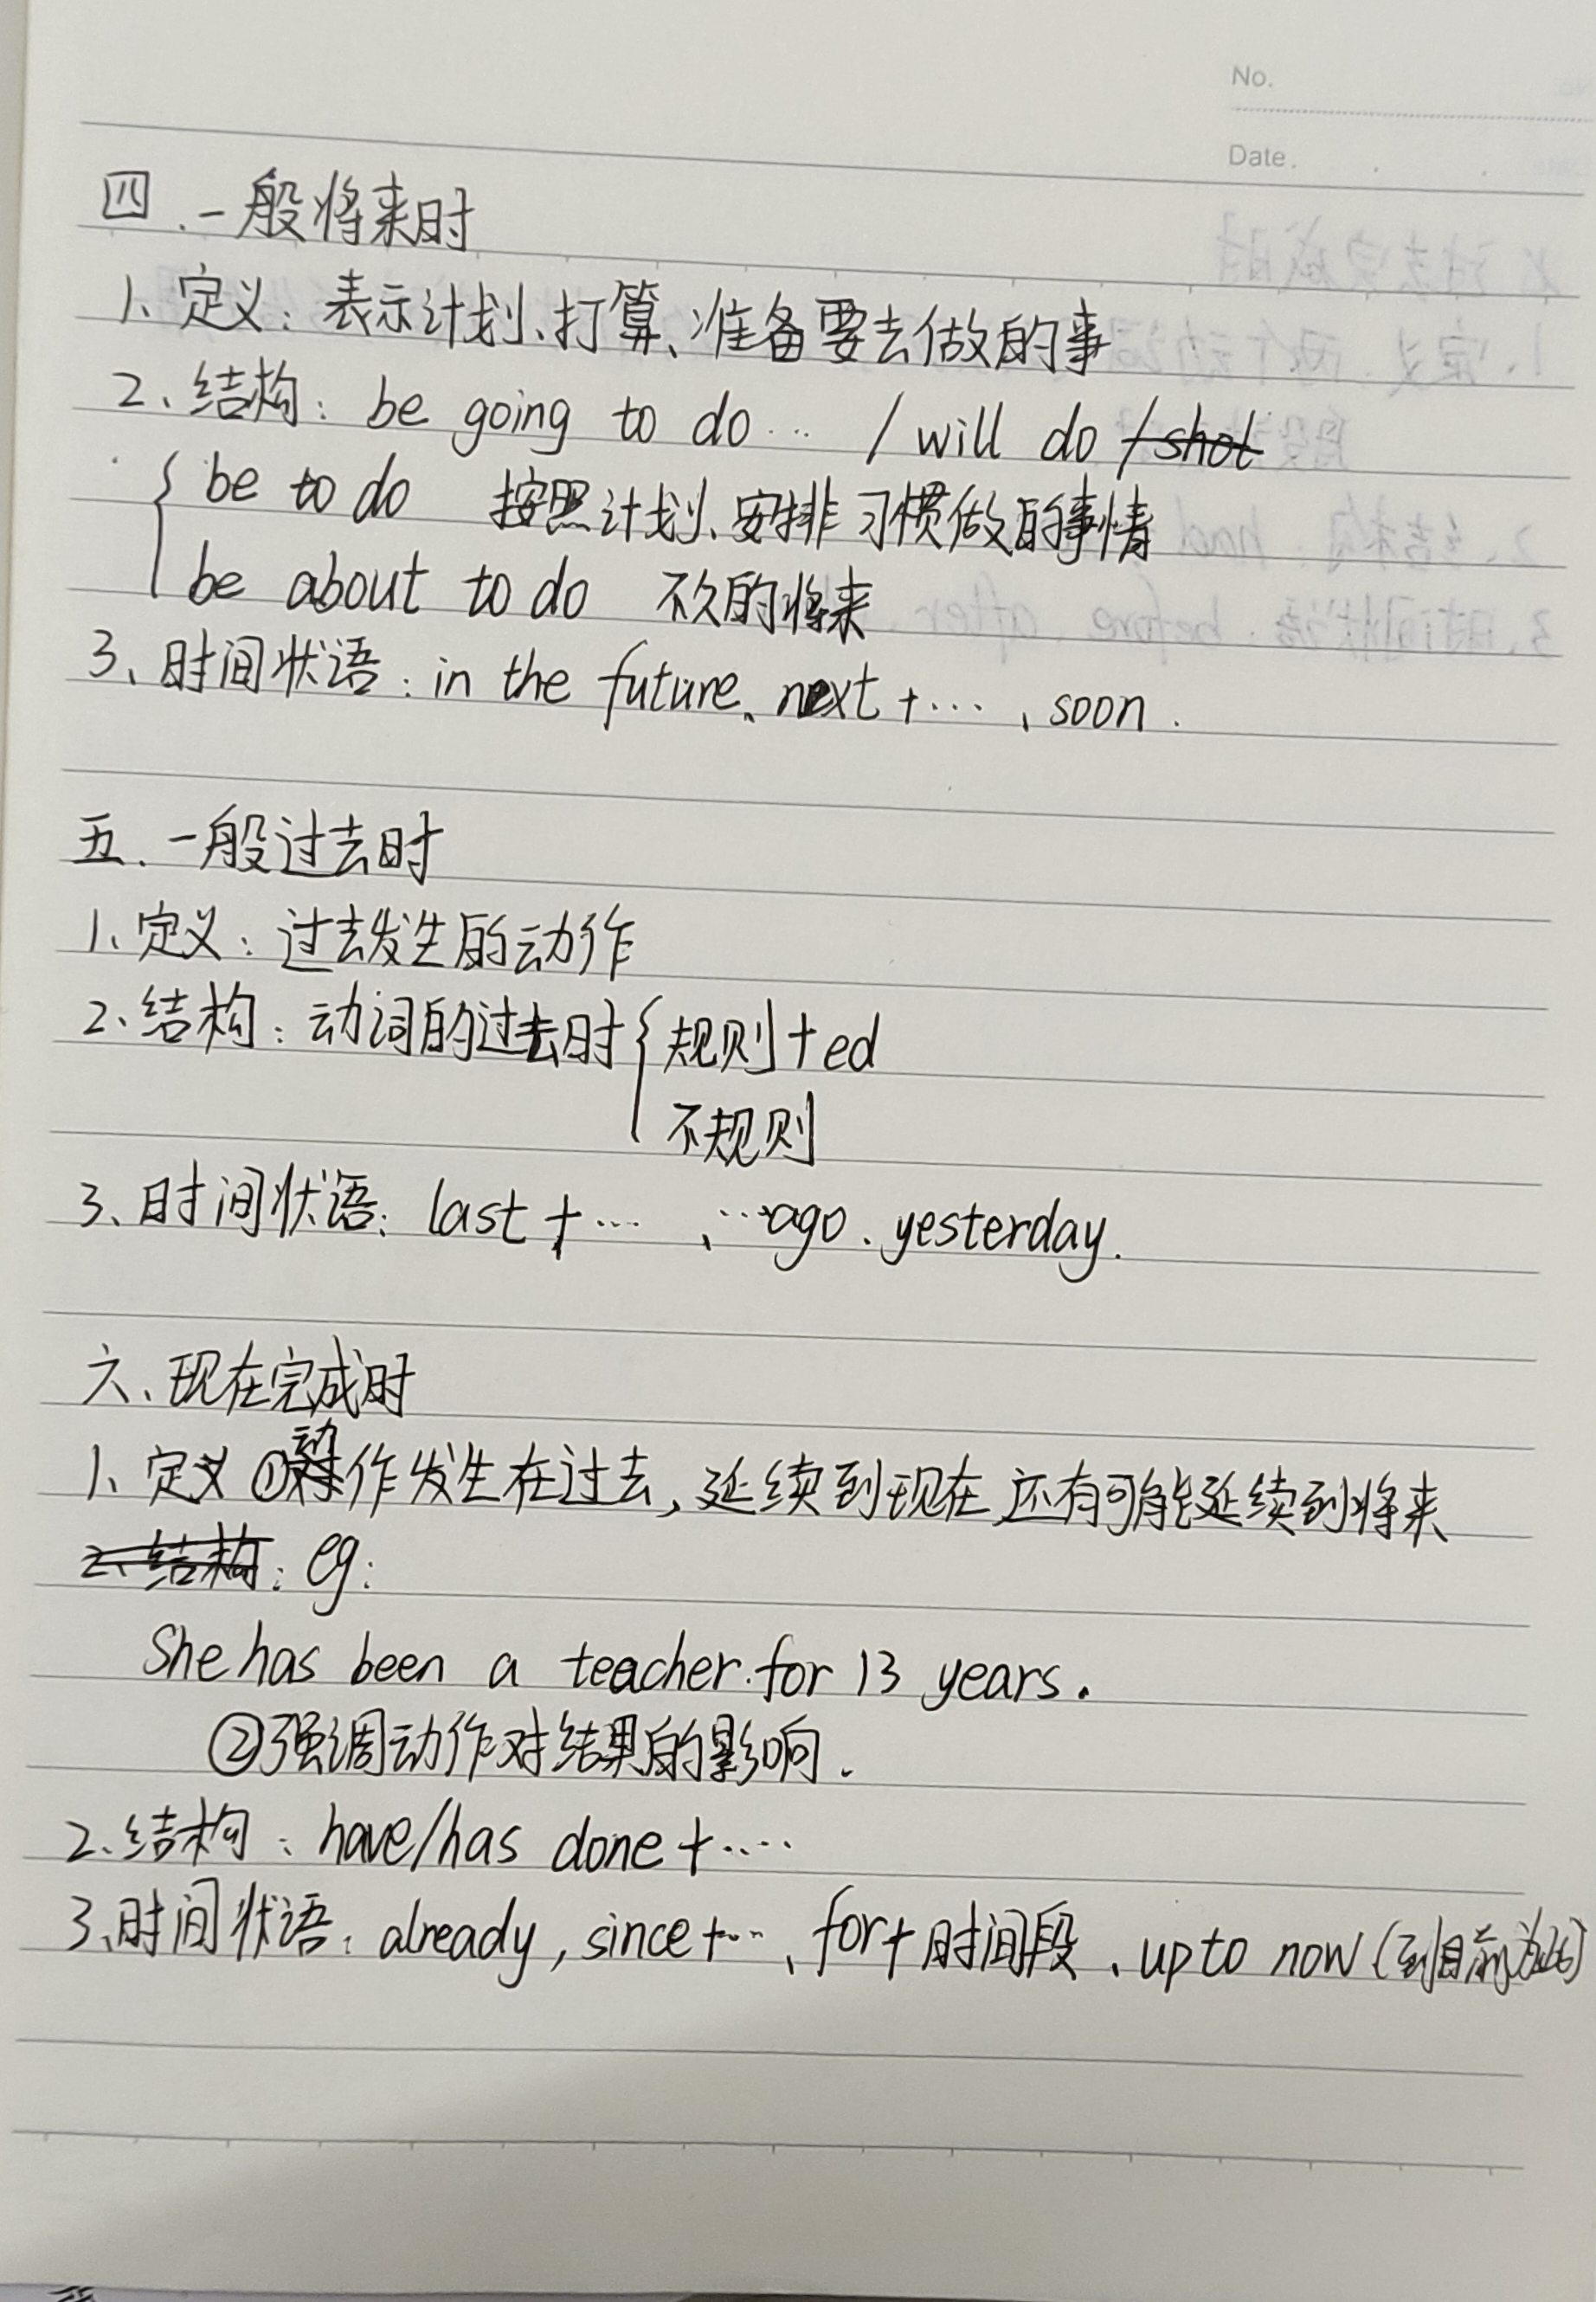 No.
Date.
四.一般将来时
1、定义：表示计划、打算、准备要去做的事
2、结构：be going to do… / will do / shot
be to do 按照计划、安排习惯做的事情
be about to do 不久的将来
3、时间状语：in the future、next+…、soon.
五.一般过去时
1、定义：过去发生的动作
2、结构：动词的过去时 规则+ed
不规则
3、时间状语：last+…、…ago、yesterday.
六、现在完成时
1、定义 ①动作发生在过去，延续到现在，还有可能延续到将来
2、结构：eg：
She has been a teacher for 13 years.
②强调动作对结果的影响.
2、结构：have/has done+…
3、时间状语：already，since+…、for+时间段、up to now（到目前为止）